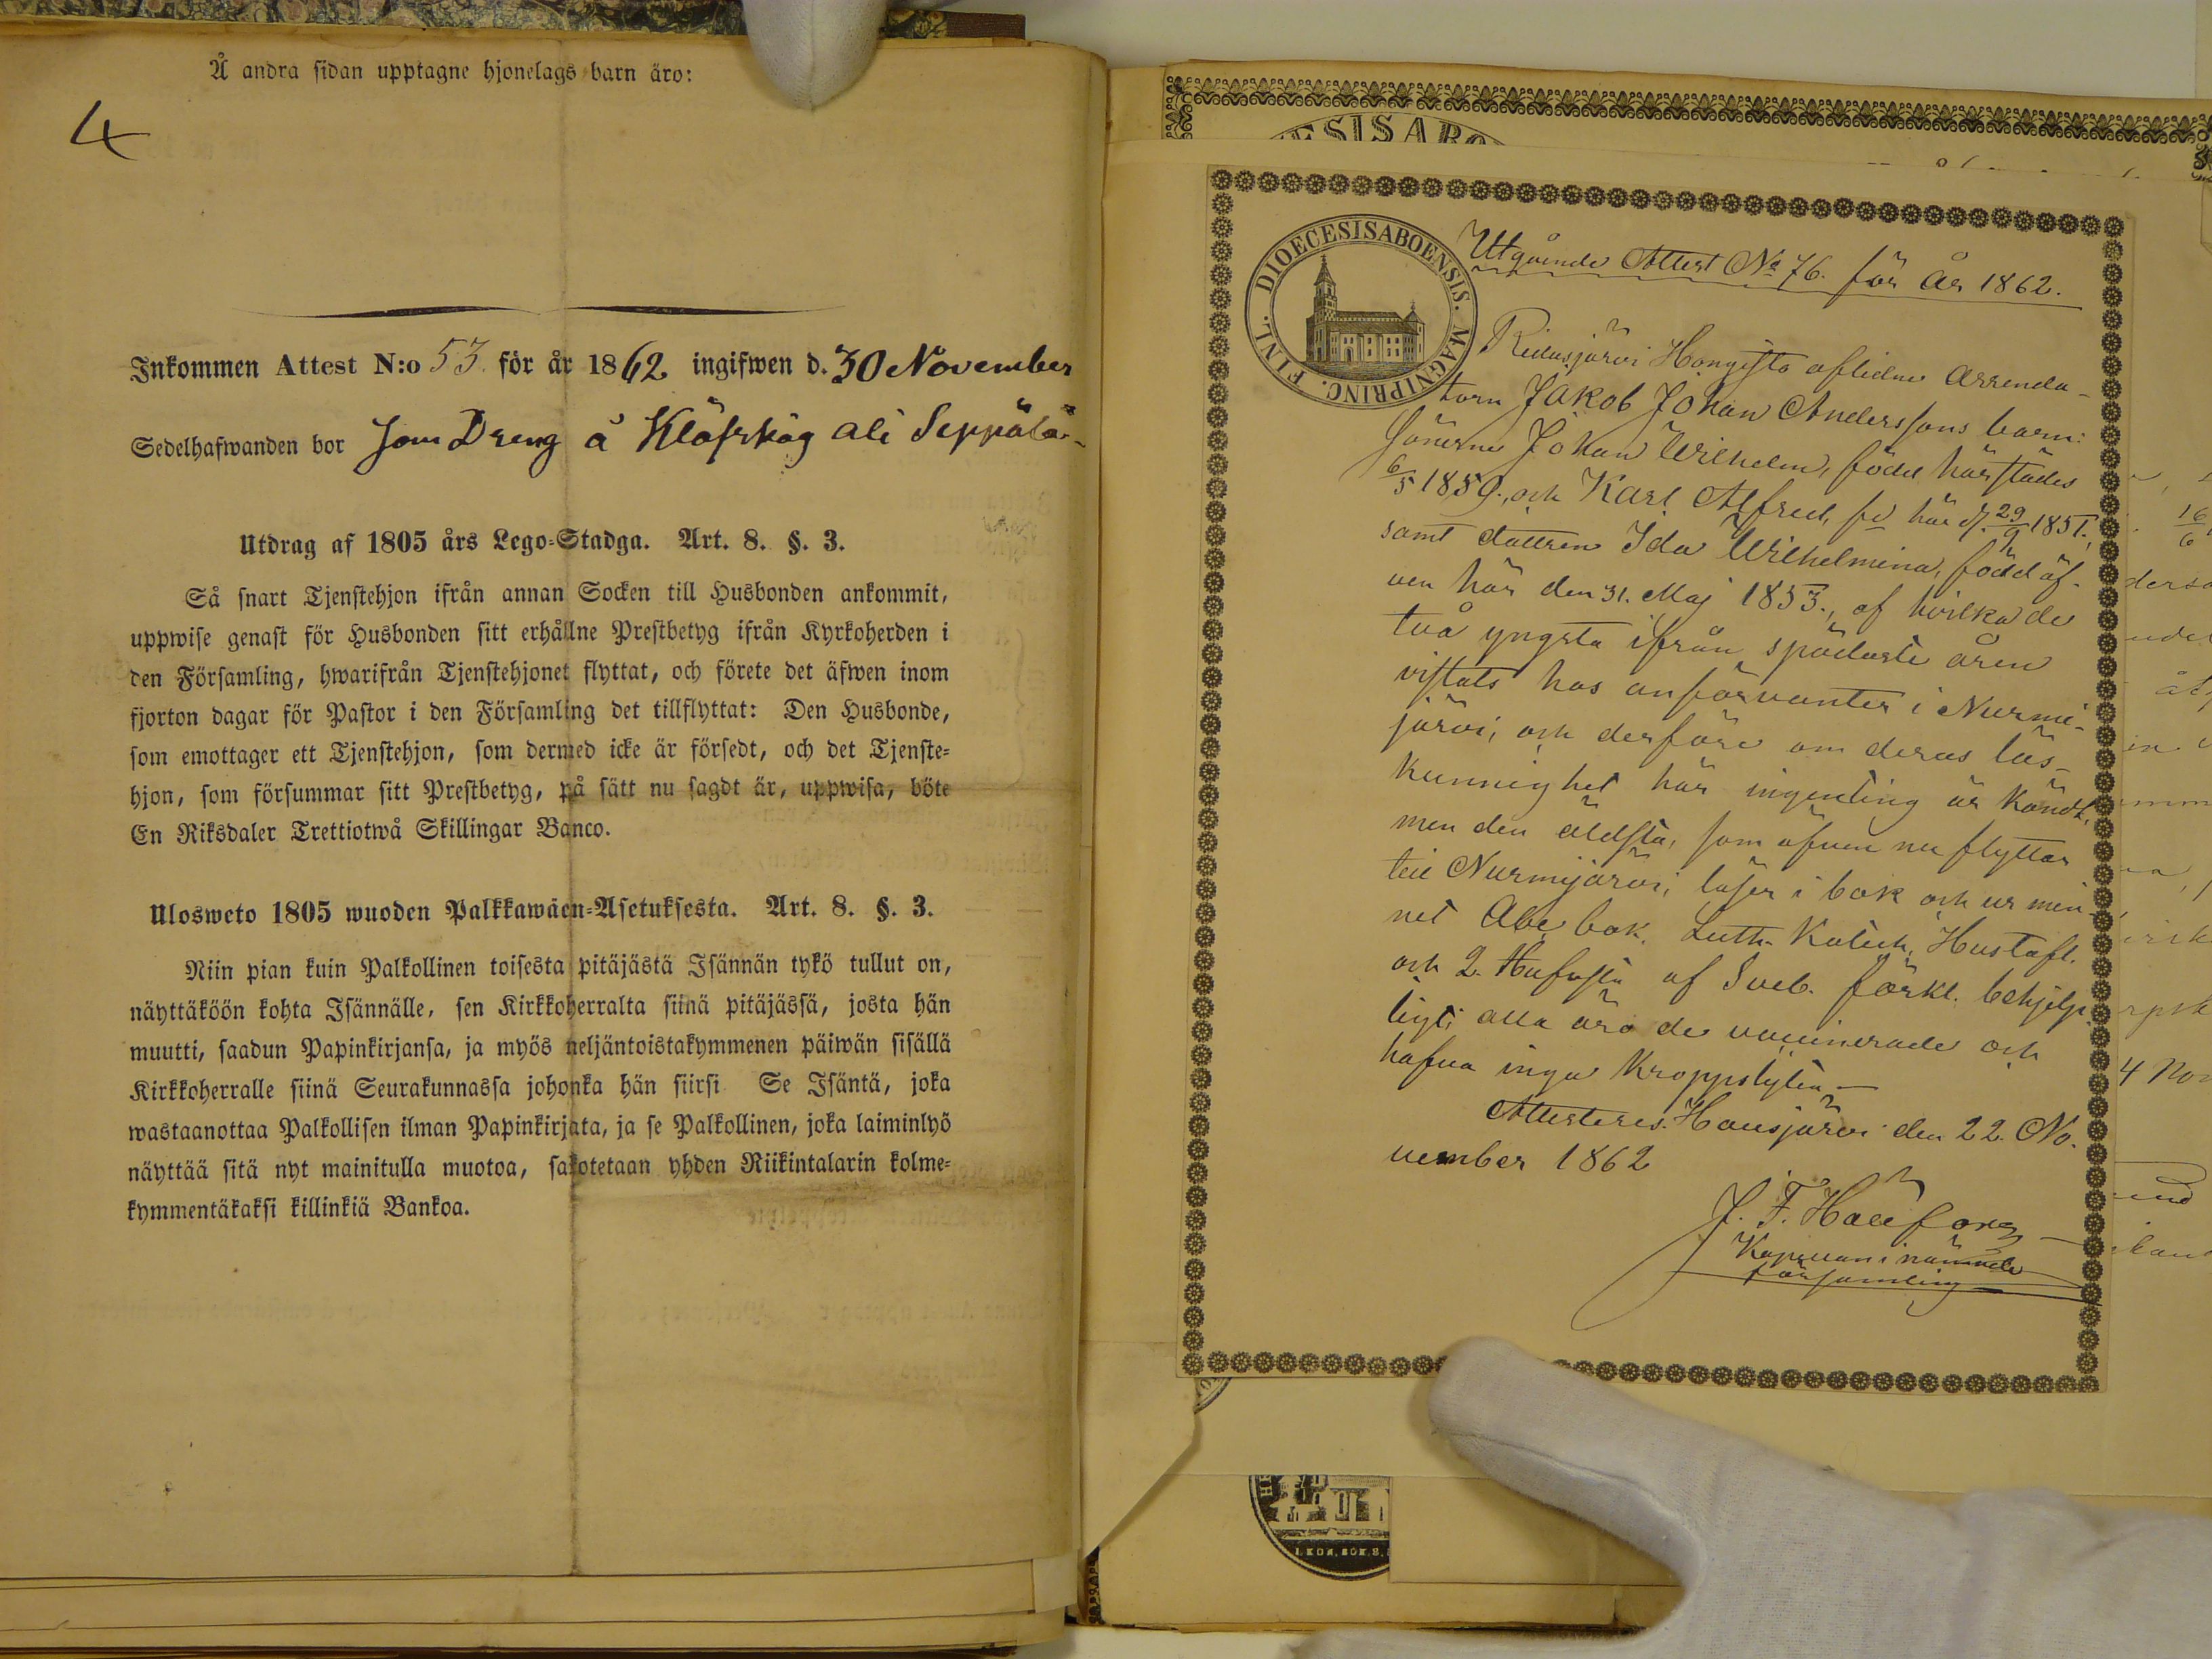 Å andra sidan upptagne hjonelags barn äro:
4
Inkommen Attest N:o 53. för år 1862 ingifwen d. 30 November
Sedelhafwanden bor som Dreng å Klöfskog ali Seppälä
Utdrag af 1805 års Lego-Stadga. Art. 8. §. 3.
Så snart Tjenstehjon ifrån annan Socken till Husbonden ankommit,
uppwise genast för Husbonden sitt erhållne Prestbetyg ifrån Kyrkoherden i
den Församling, hwarifrån Tjenstehjonet flyttat, och förete det äfwen inom
fjorton dagar för Pastor i den Församling det tillflyttat: Den Husbonde,
som emottager ett Tjenstehjon, som dermed icke är försedt, och det Tjenste-
hjon, som försummar sitt Prestbetyg, på sätt nu sagdt är, uppwisa, böte
En Riksdaler Trettiotwå Skillingar Banco.
Ulosweto 1805 wuoden Palkkawäen-Asetuksesta. Art. 8. §. 3.
Niin pian kuin Palkollinen toisesta pitäjästä Isännän tykö tullut on,
näyttäköön kohta Isännälle, sen Kirkkoherralta siinä pitäjässä, josta hän
muutti, saadun Papinkirjansa, ja myös neljäntoistakymmenen päiwän sisällä
Kirkkoherralle siinä Seurakunnassa johonka hän siirsi Se Isäntä, joka
wastaanottaa Palkollisen ilman Papinkirjata, ja se Palkollinen, joka laiminlyö
näyttää sitä nyt mainitulla muotoa, sakotetaan yhden Riikintalarin kolme-
kymmentäkaksi killinkiä Bankoa.
DIOECESISABOENSIS. MAGNIPRINC. FINL.
Utgående Attest No 76. för år 1862.
Ridasjärvi Hongisto aflidne Arrenda-
torn Jakob Johan Anderssons barn:
sönerne Johan Wilhelm, född härstädes
6/5 1859., och Karl Alfred, fd här d. 29/9 1851.,
samt dottren Ida Wilhelmina, född äf-
ven här den 31. Maj 1853., af hvilka de
två yngsta ifrån spädaste åren
vistats hos anförvanter i Nurmi-
järvi, och derföre om deras läs-
kunnighet här ingenting är kändt,
men den äldsta, som äfven nu flyttar
till Nurmijärvi, läser i bok och ur min-
net Abc bok. Luth. Katech. Hustafl.
och 2. Hufvst. af Sveb. förkl. behjelp-
ligt; alla äro de vaccinerade och
hafva inga kroppslyten –
Attesteres. Hausjärvi den 22. No-
vember 1862
J. F. Hallfors
Kapellan i nämnde
församling